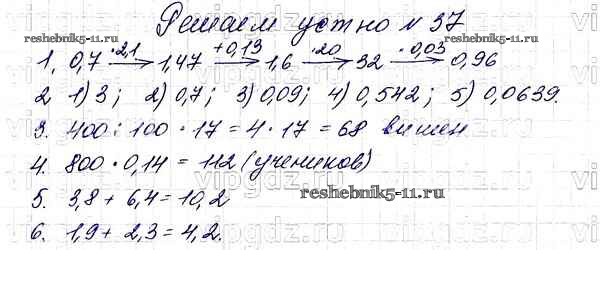 Решаем устно № 37
1. 0,7 —·2,1→ 1,47 —+0,13→ 1,6 —·20→ 32 —·0,03→ 0,96
2 1) 3; 2) 0,7; 3) 0,09; 4) 0,542; 5) 0,0639.
3. 400 : 100 · 17 = 4 · 17 = 68 вишен
4. 800 · 0,14 = 112 (учеников)
5. 3,8 + 6,4 = 10,2
6. 1,9 + 2,3 = 4,2.
reshebnik5-11.ru
reshebnik5-11.ru
reshebnik5-11.ru
vipgdz.ru